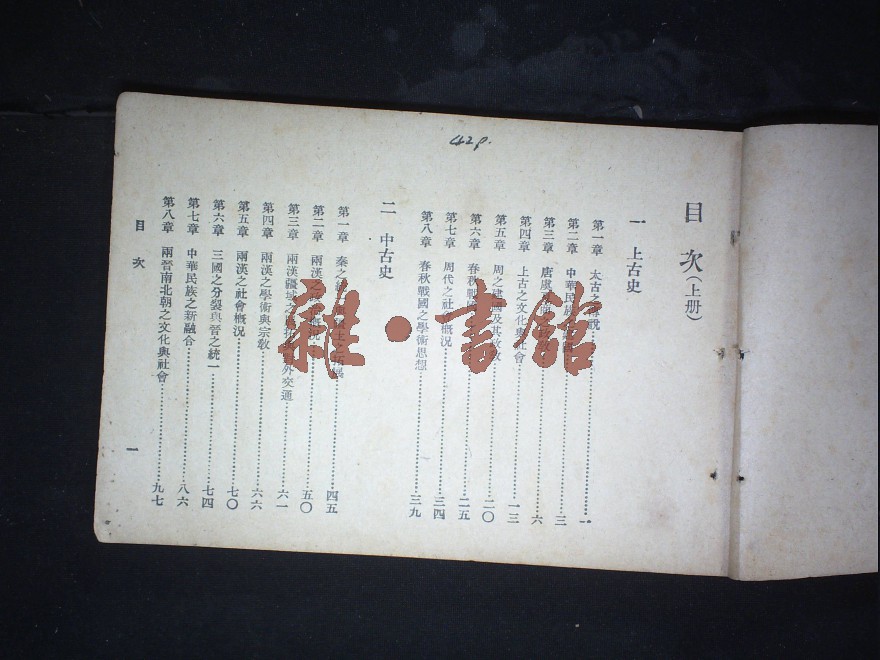 42p.
目次(上册)
一 上古史
第一章 太古之傳說 一
第二章 中華民族 三
第三章 唐虞 六
第四章 上古之文化與社會 一三
第五章 周之建國及其 二〇
第六章 春秋戰國 二五
第七章 周代之社會概況 三四
第八章 春秋戰國之學術思想 三九
二 中古史
第一章 秦之統 四五
第二章 兩漢之 概況 五〇
第三章 兩漢疆域之 外交通 六一
第四章 兩漢之學術與宗教 六六
第五章 兩漢之社會概況 七〇
第六章 三國之分裂與晉之統一 七四
第七章 中華民族之新融合 八六
第八章 兩晉南北朝之文化與社會 九七
目次
一
雜·書館